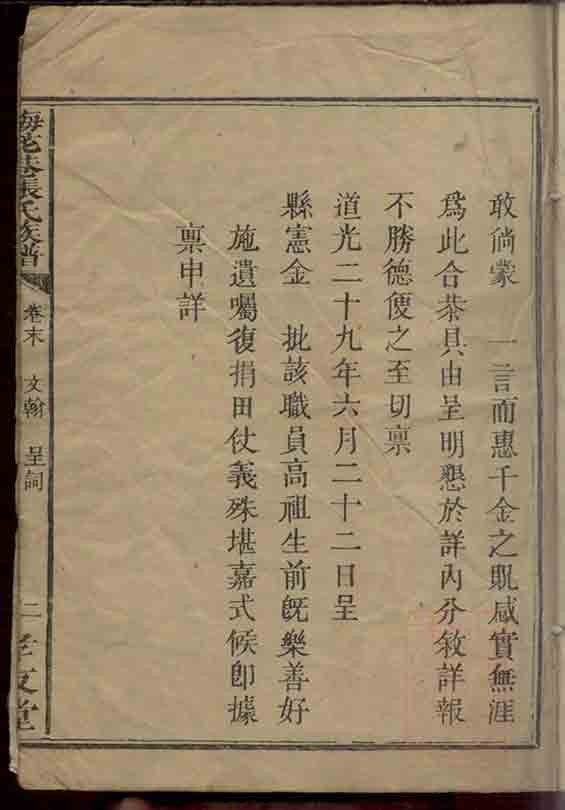 敢徜蒙　一言而惠千金之貺感實無涯
為此合恭具由呈明懇於詳內分敘詳報
不勝德便之至切稟
道光二十九年六月二十二日呈
縣憲金　批該職員高祖生前旣樂善好
施遺囑復捐田仗義殊堪嘉式候卽據
稟申詳
巷張氏族譜
卷末　文翰　呈詞
二
孝友堂